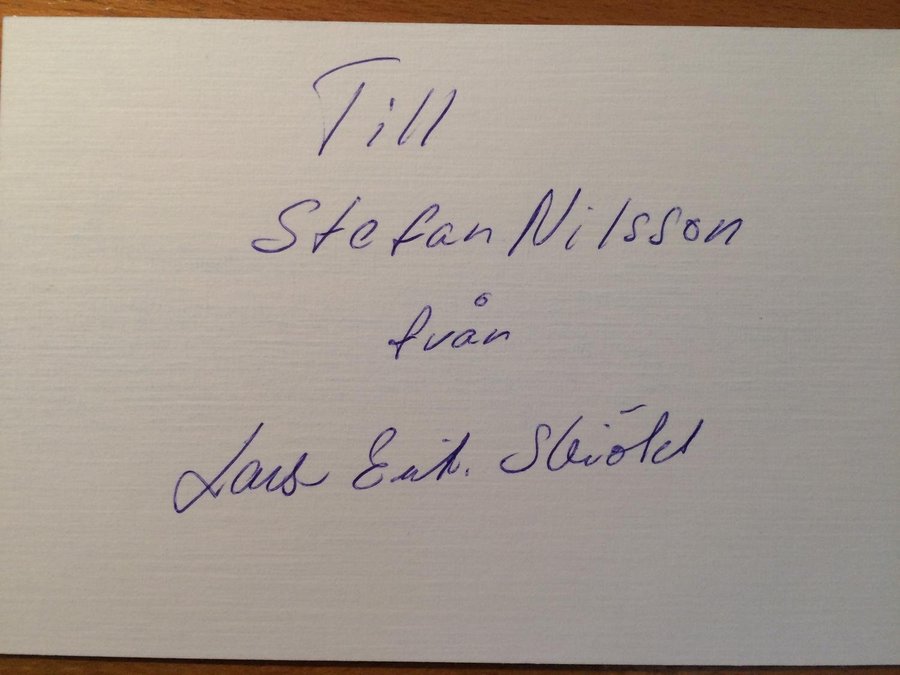 Till
Stefan Nilsson
från
Lars Erik Skiöld